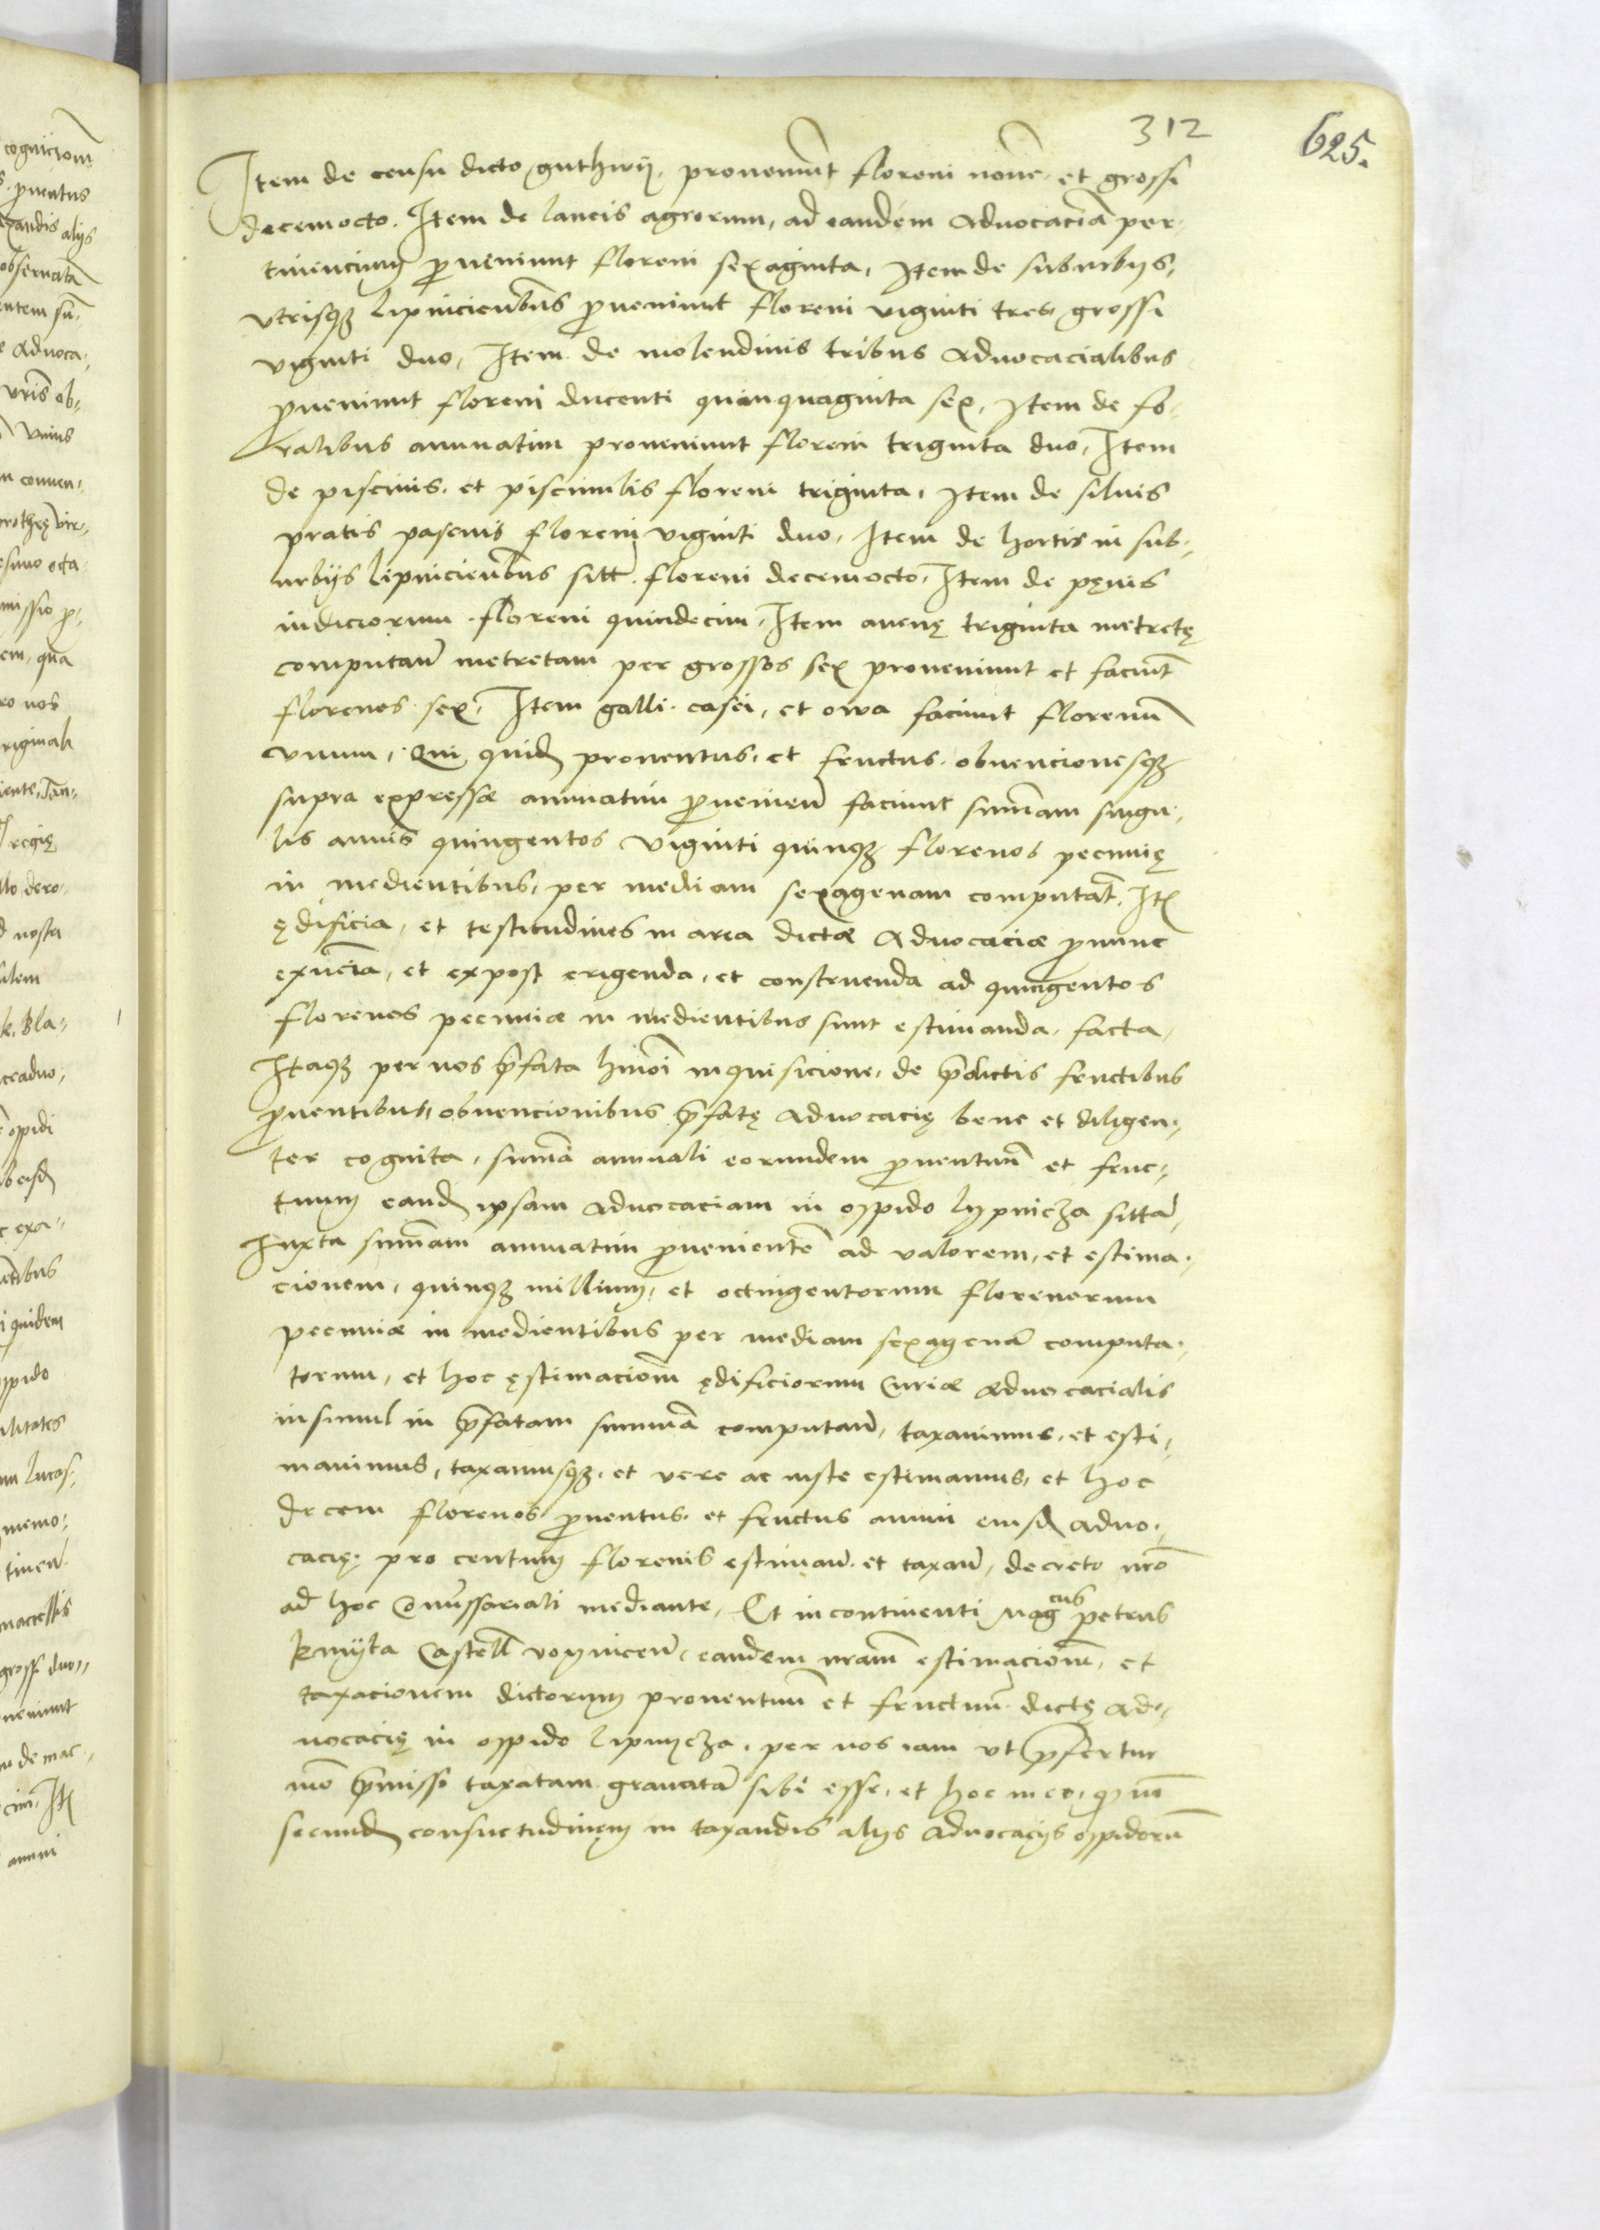 312
625.
Item de censu dicto guthwij, proveniu͂t floreni nove͂ et grossi
decemocto. Item de laneis agrorum, ad eandem Advocacia͂ per-
tinencium p̱veniunt floreni sexaginta, Item de suburbijs,
vtrisqꝫ Lipnicien͂bus p̱veniunt floreni viginti tres grossi
viginti duo, Item de molendinis tribus advocacialibus
p̱veniunt floreni ducenti quinquaginta sex, Item de fo-
ralibus annuatim proveniunt floreni triginta duo, Item
de piscinis, et piscinulis floreni triginta, Item de siluis
pratis pascuis floreni viginti duo, Item de hortis in sub-
urbijs Lipnicien͂bus sitt͂. floreni decemocto, Item de pęnis
iudiciorum floreni quindecim, Item avenę triginta metretę
computan͂ metretam per grossos sex proveniunt et faciu͂t
florenos sex, Item galli. casei, et owa faciunt florenu͂
vnum, Qui quidē proventus, et fructus obvencionesqꝫ
supra expressæ annuatim p̱venien͂ faciunt sum͂am singu-
lis annis quingentos viginti quinqꝫ florenos pecunię
in medientibus, per mediam sexagenam computat͂. Itē
ędificia, et testitudines in area dictæ Advocaciæ p̱nunc
exn͂cia, et expost erigenda, et construenda ad quingentos
florenos pecuniæ in medientibus sunt estimanda, facta
Itaqꝫ per nos p͂fata hmo͂i inquisicione, de p͂dictis fructibus
p̱ventibus, obvencionibus p͂fatę advocacię bene et diligen-
ter cognita, sum͂a annuali eorundem p̱ventuu͂ et fruc-
tuum eandē ipsam advocaciam in oppido Lypnicza sitta͂,
Iuxta sum͂am annuatim p̱veniente͂ ad valorem, et estima-
cionem, quinqꝫ millium, et octingentorum florenorum
pecuniæ in medientibus per mediam sexagena͂ computa-
torum, et hoc ęstimacione͂ ędificiorum Curiæ advocacialis
insimul in p͂fatam summa͂ computan͂, taxavimus, et esti-
mavimus, taxamusqꝫ, et vere ac iuste estimamus, et hoc
decem florenos p̱ventus, et fructus annui eiusdē advo-
cacię, pro centum florenis estiman͂. et taxan͂, decreto nr͂o
ad hoc Com͂issariali mediante, Et incontinenti Mag͂cus petrus
kmyta Castell͂ voynicen͂, eandem nr͂am estimacione͂, et
taxacionem dictorum proventuu͂ et fructuu͂ dictę ad-
vocacię in oppido Lipnycza, per nos iam vt p͂fertur
mo͂ p͂misso taxatam gravata͂ sibi esse, et hoc in eo, q̱ in͂
secundē consuetudinem in taxandis alijs advocacijs oppidoru͂